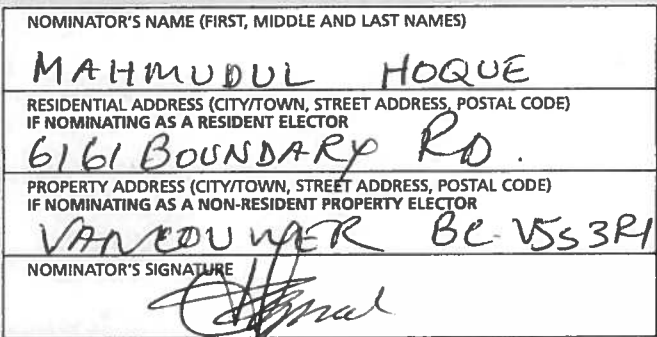 NOMINATOR'S NAME (FIRST, MIDDLE AND LAST NAMES)
MAHMUDUL HOQUE
RESIDENTIAL ADDRESS (CITY/TOWN, STREET ADDRESS, POSTAL CODE)
IF NOMINATING AS A RESIDENT ELECTOR
6161 BOUNDARY RD.
PROPERTY ADDRESS (CITY/TOWN, STREET ADDRESS, POSTAL CODE)
IF NOMINATING AS A NON-RESIDENT PROPERTY ELECTOR
VANCOUVER BC-V5S3R1
NOMINATOR'S SIGNATURE